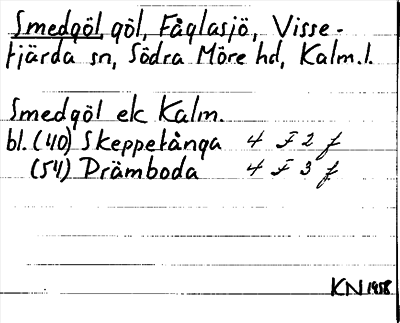 Smedgöl, göl, Fåglasjö, Visse-
fjärda sn, Södra Möre hd, Kalm. l.
Smedgöl ek Kalm.
bl. (40) Skeppetånga 4 F 2 f
(54) Drämboda 4 F 3 f
KN 1958